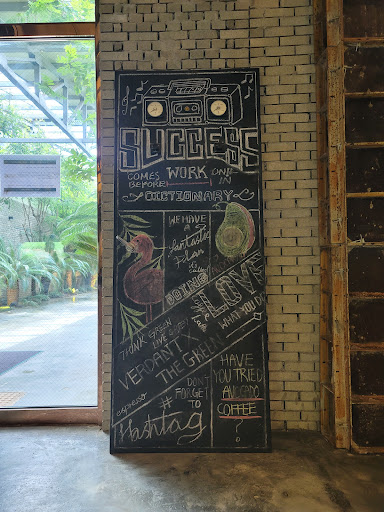 SUCCESS
COMES BEFORE WORK ONLY IN
DICTIONARY
WE HAVE
a
fantastic
Plan
it
called
DOING
LOVE
WHAT YOU DO
THINK GREEN
LIVE GREEN
VERDANT X
THE GREEN
espresso
DONT
FORGET
TO
#
Hashtag
HAVE
YOU TRIED
AVOCADO
COFFEE